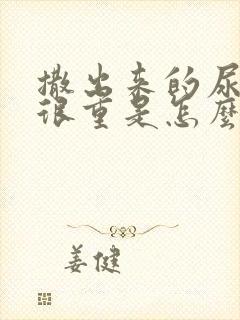 撒出来的尿
很重是怎麼
姜健